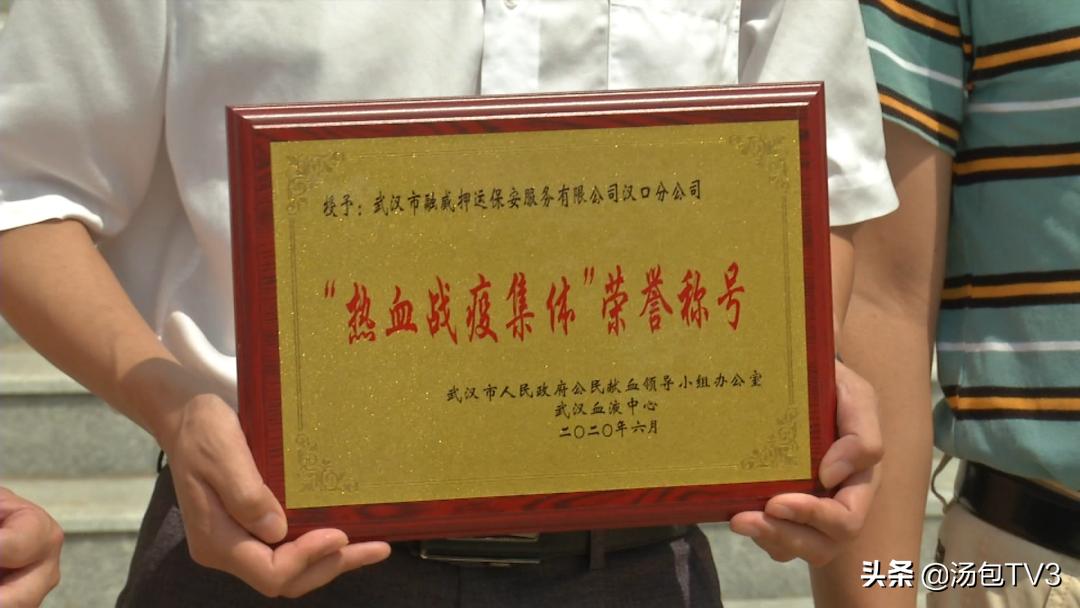 授予：武汉市融威押运保安服务有限公司汉口分公司
“热血战疫集体”荣誉称号
武汉市人民政府公民献血领导小组办公室
武汉血液中心
二〇二〇年六月
头条 @汤包TV3